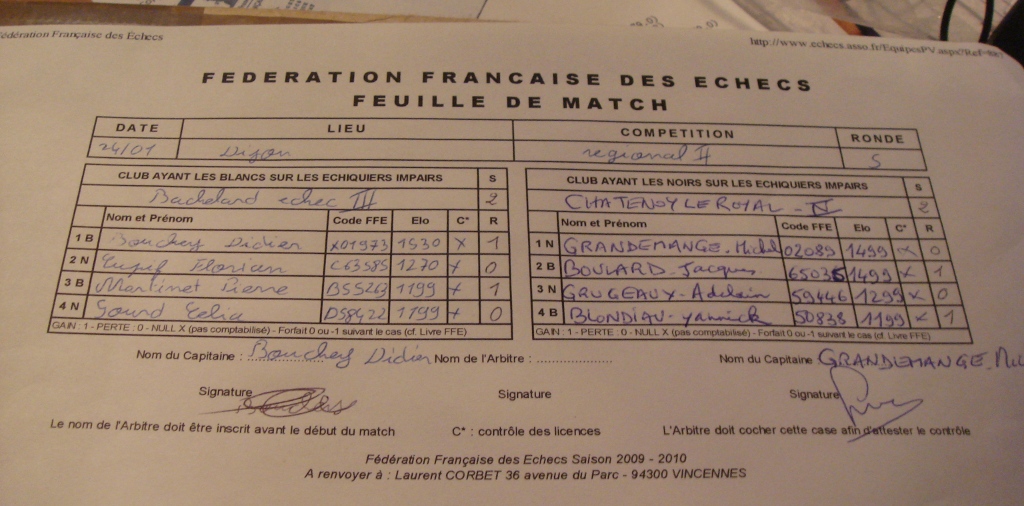 Fédération Française des Echecs
http://www.echecs.asso.fr/EquipesPV.aspx?Ref=
FEDERATION FRANCAISE DES ECHECS
FEUILLE DE MATCH
DATE LIEU COMPETITION RONDE
24/01 Dijon regional II 5
CLUB AYANT LES BLANCS SUR LES ECHIQUIERS IMPAIRS S
Bachelard echec III 2
Nom et Prénom Code FFE Elo C* R
1 B Bouchey Didier X01973 1530 x 1
2 N Florian C63585 1270 + 0
3 B Martinet Pierre B55263 1199 + 1
4 N D58422 1199 + 0
GAIN : 1 - PERTE : 0 - NULL X (pas comptabilisé) - Forfait 0 ou -1 suivant le cas (cf. Livre FFE)
CLUB AYANT LES NOIRS SUR LES ECHIQUIERS IMPAIRS S
CHATENOY LE ROYAL - IV 2
Nom et Prénom Code FFE Elo C* R
1 N GRANDEMANGE. Michel 02089 1499 x 0
2 B BOULARD. Jacques 65035 1499 x 1
3 N GRUGEAUX - Adelain 59446 1299 x 0
4 B BLONDIAU - yannick 50838 1199 x 1
GAIN : 1 - PERTE : 0 - NULL X (pas comptabilisé) - Forfait 0 ou -1 suivant le cas (cf. Livre FFE)
Nom du Capitaine : Bouchey Didier Nom de l'Arbitre : .................... Nom du Capitaine GRANDEMANGE.
Signature Signature Signature
Le nom de l'Arbitre doit être inscrit avant le début du match C* : contrôle des licences L'Arbitre doit cocher cette case afin d'attester le contrôle
Fédération Française des Echecs Saison 2009 - 2010
A renvoyer à : Laurent CORBET 36 avenue du Parc - 94300 VINCENNES